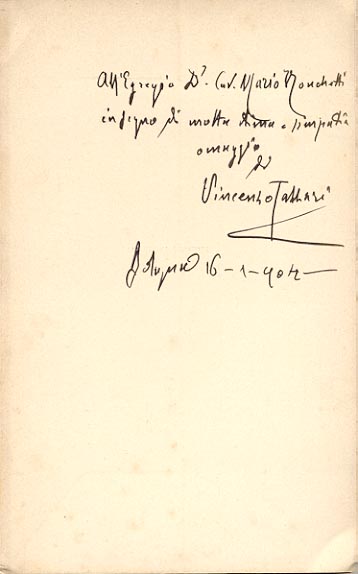 All'Egregio Dr. Cav. Mario Ronchetti
in segno di molta stima e simpatia
omaggio
di
Vincenzo Tallari
Bologna 16-1-904